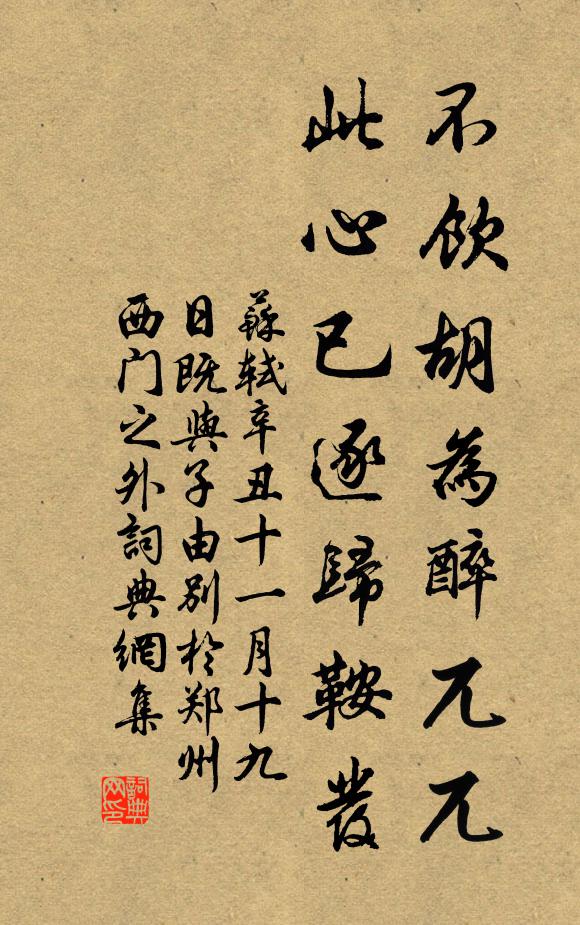 不飲胡為醉兀兀
此心已逐歸鞍發
蘇軾辛丑十一月十九
日既與子由別於郑州
西门之外詞典網集
詞典网印